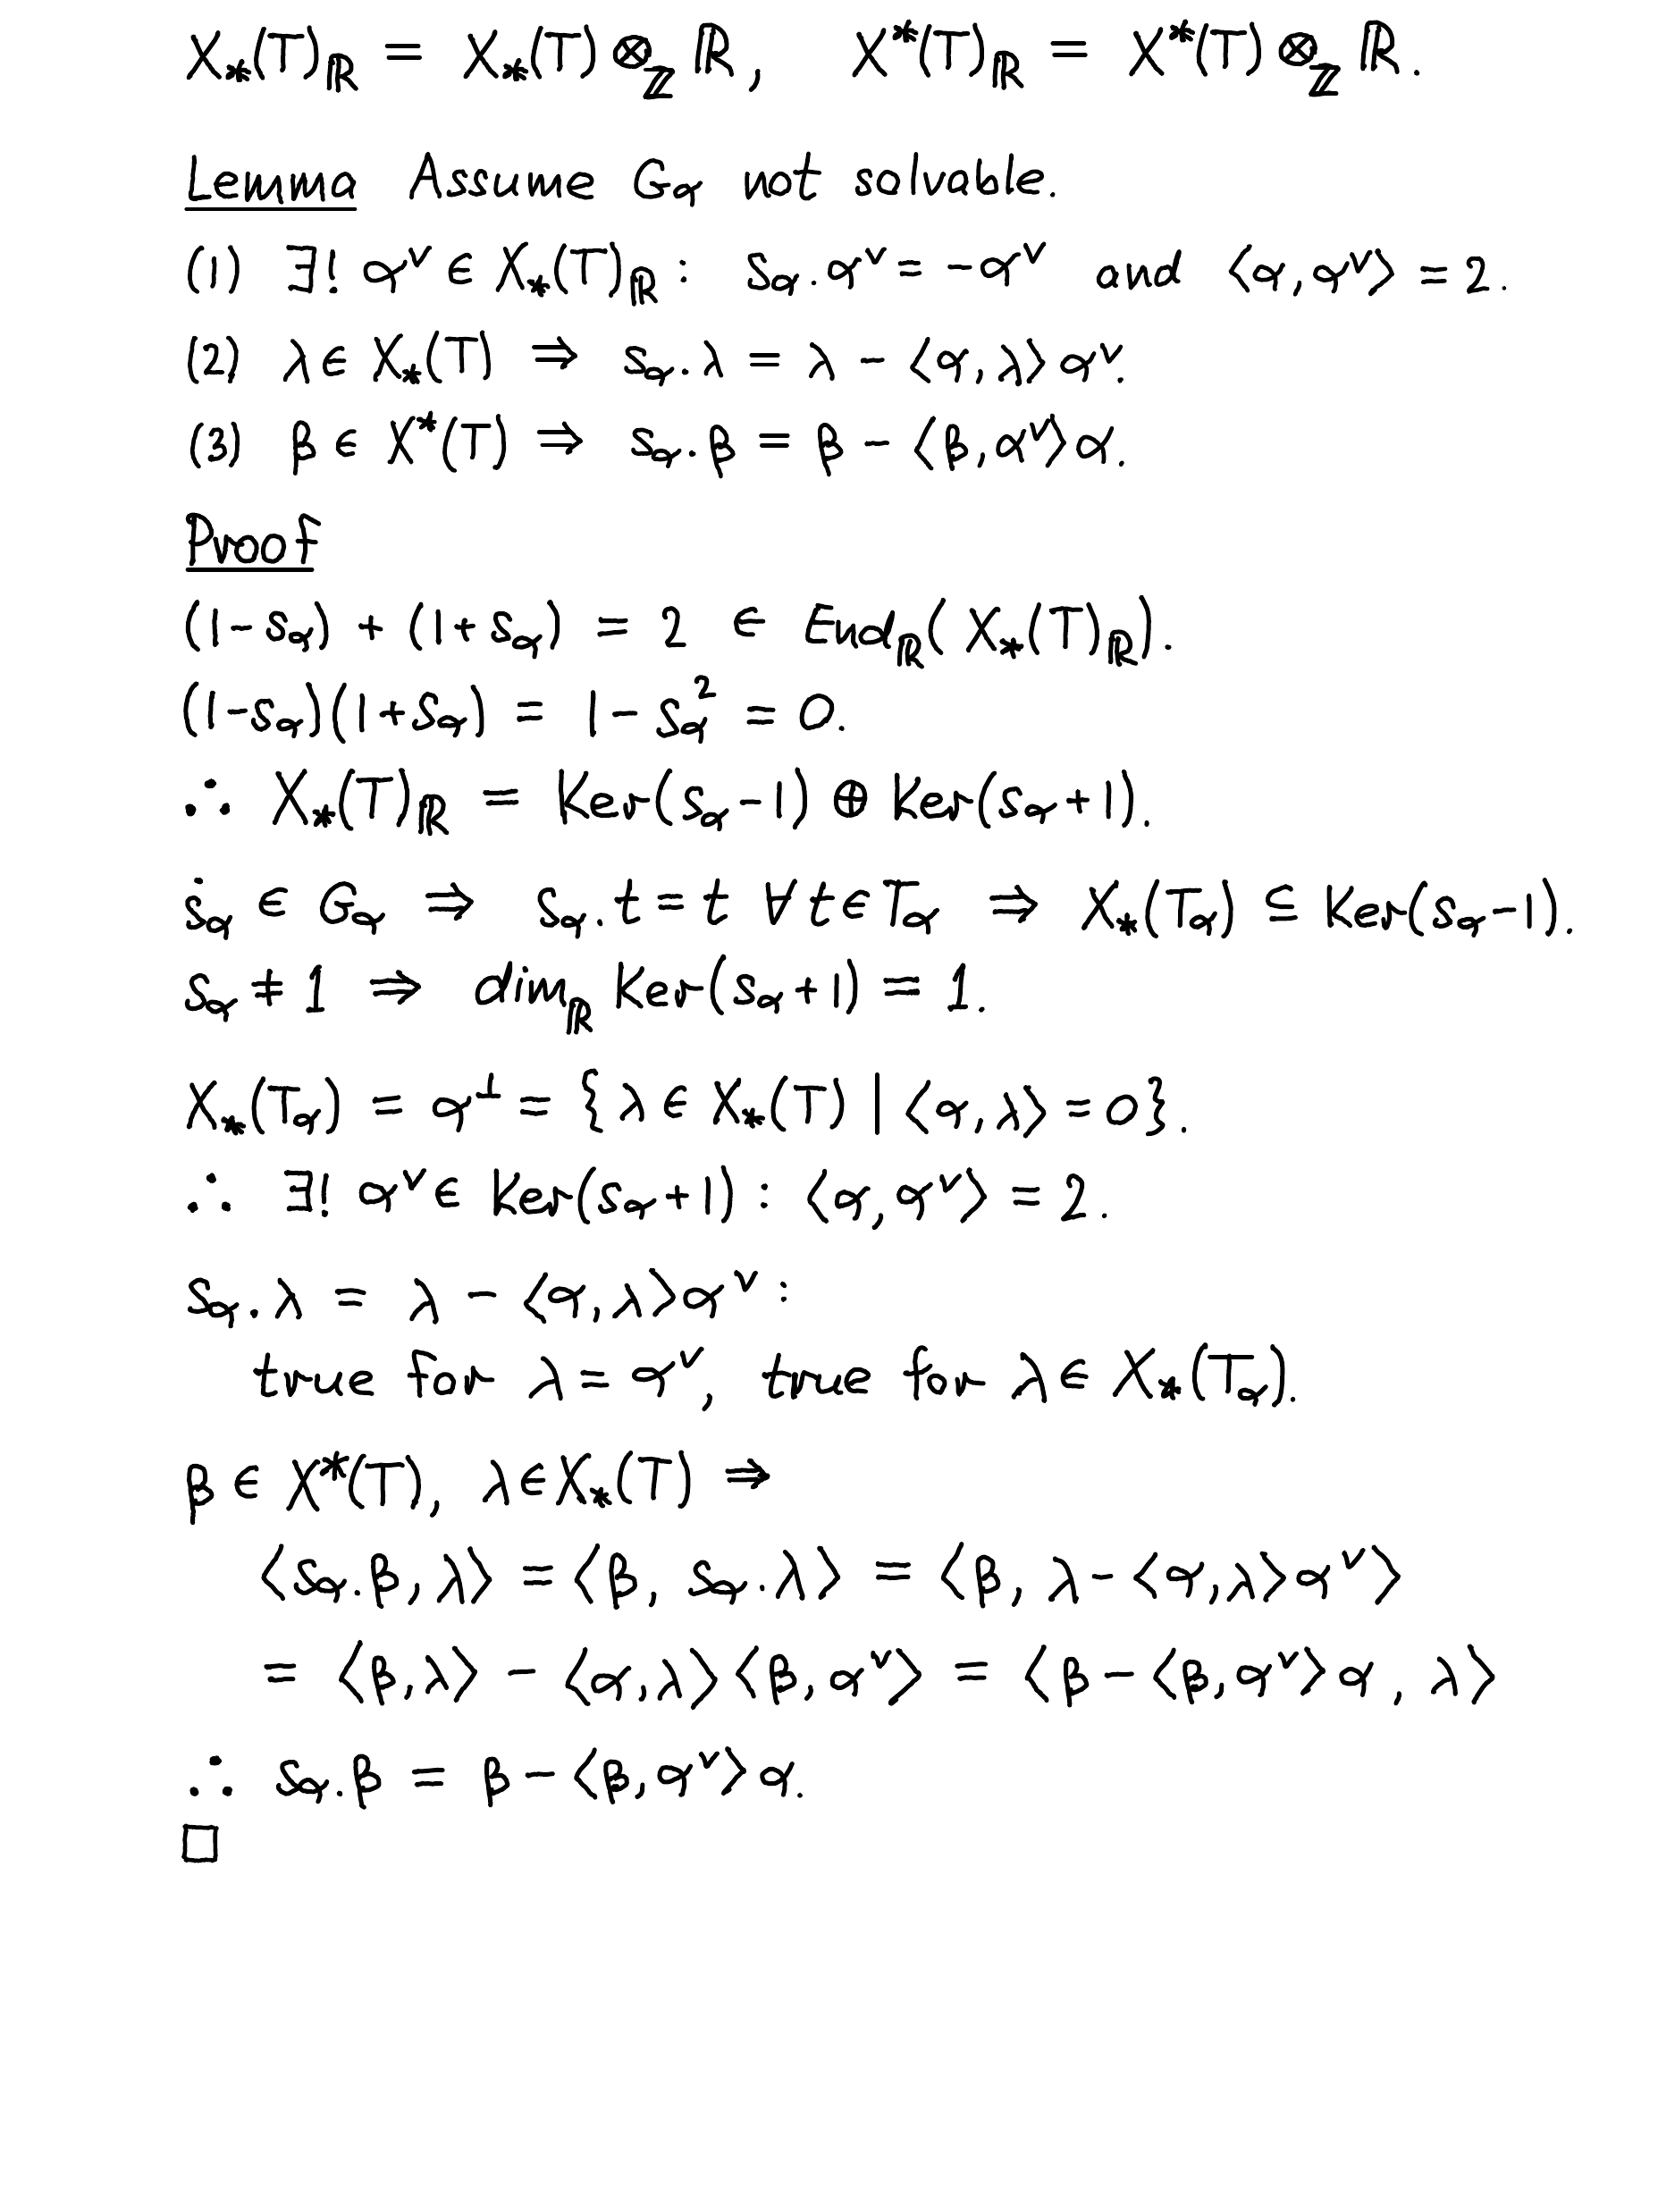 X_*(T)_ℝ = X_*(T) ⊗_ℤ ℝ, X^*(T)_ℝ = X^*(T) ⊗_ℤ ℝ.
Lemma Assume G_α not solvable.
(1) ∃! α^∨ ∈ X_*(T)_ℝ : s_α.α^∨ = -α^∨ and ⟨α, α^∨⟩ = 2.
(2) λ ∈ X_*(T) ⇒ s_α.λ = λ - ⟨α, λ⟩α^∨.
(3) β ∈ X^*(T) ⇒ s_α.β = β - ⟨β, α^∨⟩α.
Proof
(1-s_α) + (1+s_α) = 2 ∈ End_ℝ(X_*(T)_ℝ).
(1-s_α)(1+s_α) = 1 - s_α^2 = 0.
∴ X_*(T)_ℝ = Ker(s_α-1) ⊕ Ker(s_α+1).
ṡ_α ∈ G_α ⇒ s_α.t = t ∀ t ∈ T_α ⇒ X_*(T_α) ⊆ Ker(s_α-1).
s_α ≠ 1 ⇒ dim_ℝ Ker(s_α+1) = 1.
X_*(T_α) = α^⊥ = {λ ∈ X_*(T) | ⟨α, λ⟩ = 0}.
∴ ∃! α^∨ ∈ Ker(s_α+1) : ⟨α, α^∨⟩ = 2.
s_α.λ = λ - ⟨α, λ⟩α^∨ :
true for λ = α^∨, true for λ ∈ X_*(T_α).
β ∈ X^*(T), λ ∈ X_*(T) ⇒
⟨s_α.β, λ⟩ = ⟨β, s_α.λ⟩ = ⟨β, λ - ⟨α, λ⟩α^∨⟩
= ⟨β, λ⟩ - ⟨α, λ⟩⟨β, α^∨⟩ = ⟨β - ⟨β, α^∨⟩α, λ⟩
∴ s_α.β = β - ⟨β, α^∨⟩α.
□